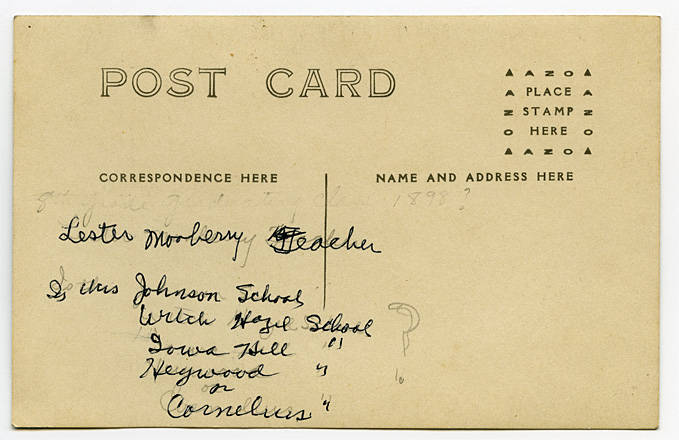 POST CARD
▲ A Z O ▲
A PLACE A
Z STAMP Z
O HERE O
▲ A Z O ▲
CORRESPONDENCE HERE
NAME AND ADDRESS HERE
8th grade graduating class 1898?
Lester Mooberry Teacher
Is this Johnson School
Witch Hazel School
Iowa Hill "
Heywood "
or
Cornelius "
?